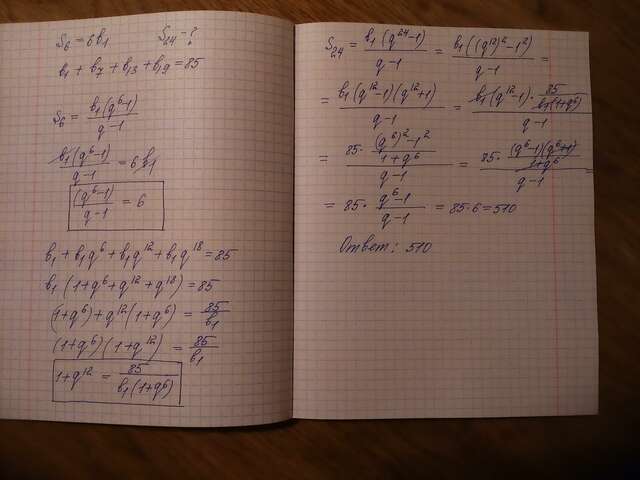 S₆ = 6b₁ S₂₄ - ?
b₁ + b₇ + b₁₃ + b₁₉ = 85
S₆ = b₁(q⁶-1) / q-1
b₁(q⁶-1) / q-1 = 6b₁
(q⁶-1) / q-1 = 6
b₁ + b₁q⁶ + b₁q¹² + b₁q¹⁸ = 85
b₁(1+q⁶+q¹²+q¹⁸) = 85
(1+q⁶)+q¹²(1+q⁶) = 85/b₁
(1+q⁶)(1+q¹²) = 85/b₁
1+q¹² = 85 / b₁(1+q⁶)
S₂₄ = b₁(q²⁴-1) / q-1 = b₁((q¹²)²-1²) / q-1 =
= b₁(q¹²-1)(q¹²+1) / q-1 = b₁(q¹²-1)· 85 / b₁(1+q⁶) / q-1
= 85· (q⁶)²-1² / 1+q⁶ / q-1 = 85· (q⁶-1)(q⁶+1) / 1+q⁶ / q-1 =
= 85· q⁶-1 / q-1 = 85·6 = 510
Ответ: 510